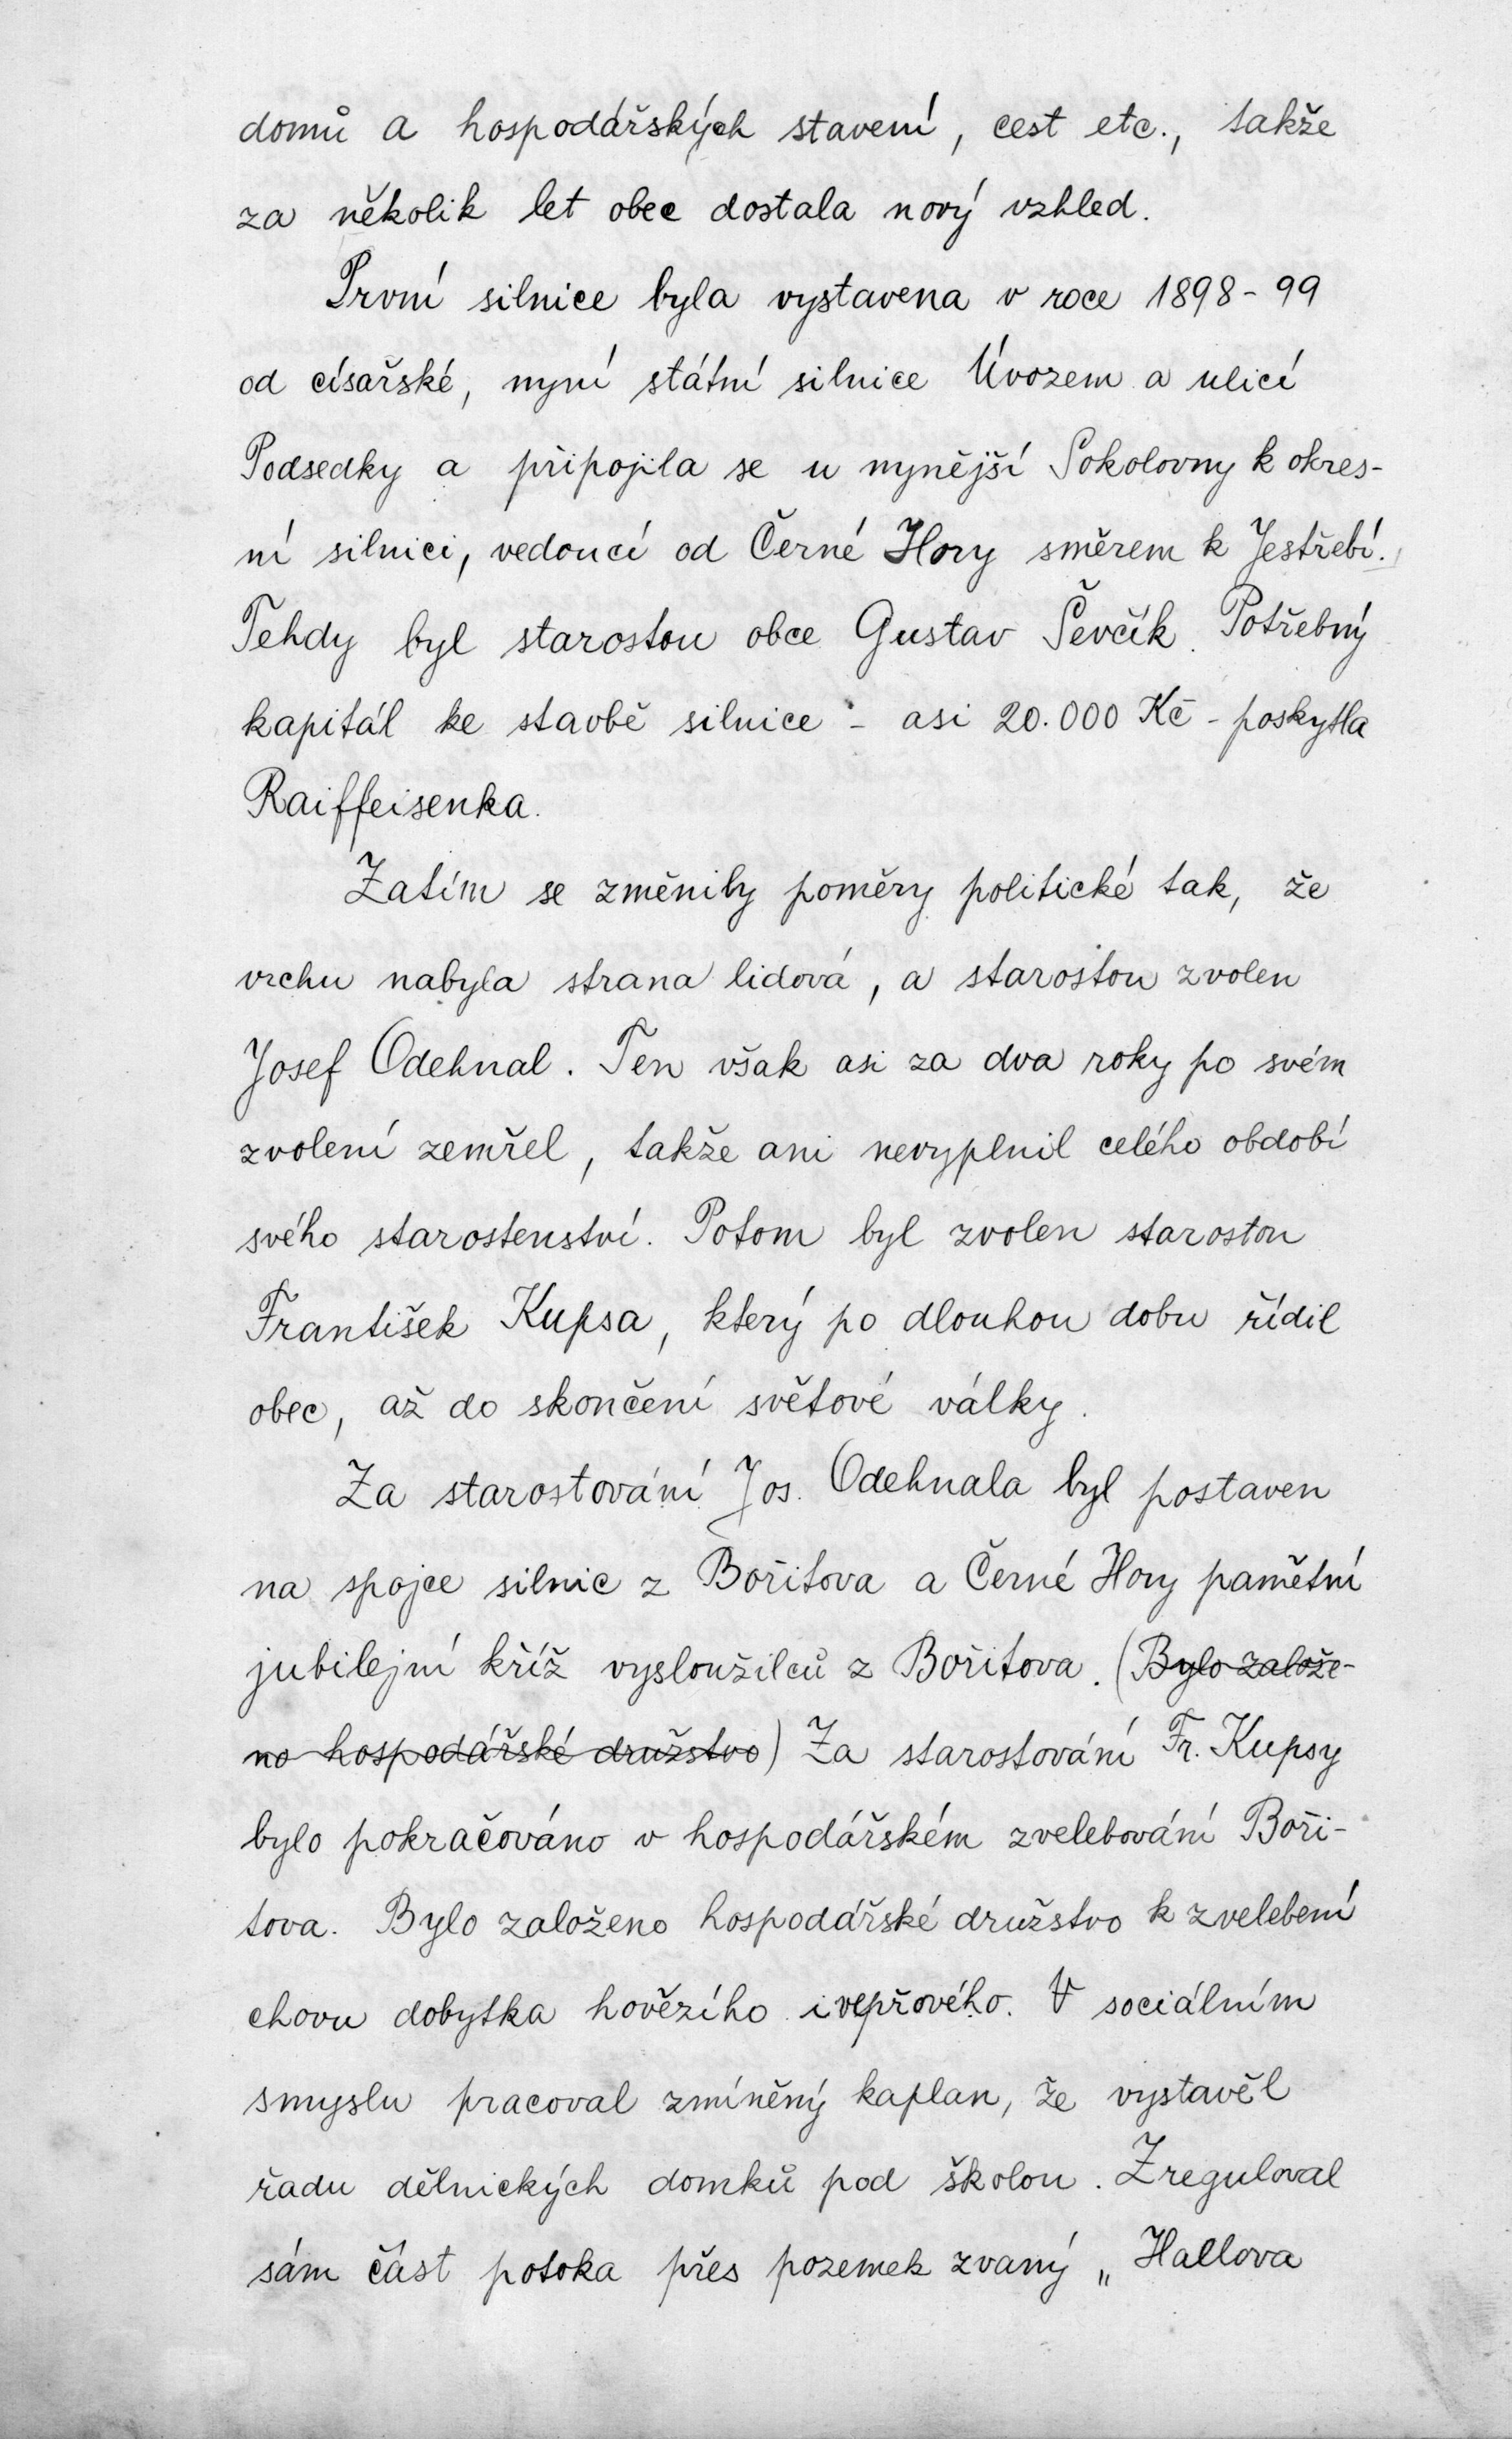 domů a hospodářských stavení, cest etc., takže
za několik let obec dostala nový vzhled.
První silnice byla vystavena v roce 1898-99
od císařské, nyní státní silnice Úvozem a ulicí
Podsedky a připojila se u nynější Sokolovny k okres-
ní silnici, vedoucí od Černé Hory směrem k Jestřebí.
Tehdy byl starostou obce Gustav Ševčík. Potřebný
kapitál ke stavbě silnice - asi 20.000 Kč - poskytla
Raiffeisenka.
Zatím se změnily poměry politické tak, že
vrchu nabyla strana lidová, a starostou zvolen
Josef Odehnal. Ten však asi za dva roky po svém
zvolení zemřel, takže ani nevyplnil celého období
svého starostenství. Potom byl zvolen starostou
František Kupsa, který po dlouhou dobu řídil
obec, až do skončení světové války.
Za starostování Jos. Odehnala byl postaven
na spojce silnic z Bořitova a Černé Hory pamětní
jubilejní kříž vysloužilců z Bořitova. (Bylo založe-
no hospodářské družstvo) Za starostování Fr. Kupsy
bylo pokračováno v hospodářském zvelebování Boři-
tova. Bylo založeno hospodářské družstvo k zvelebení
chovu dobytka hovězího i vepřového. V sociálním
smyslu pracoval zmíněný kaplan, že vystavěl
řadu dělnických domků pod školou. Zreguloval
sám část potoka přes pozemek zvaný „Hallova